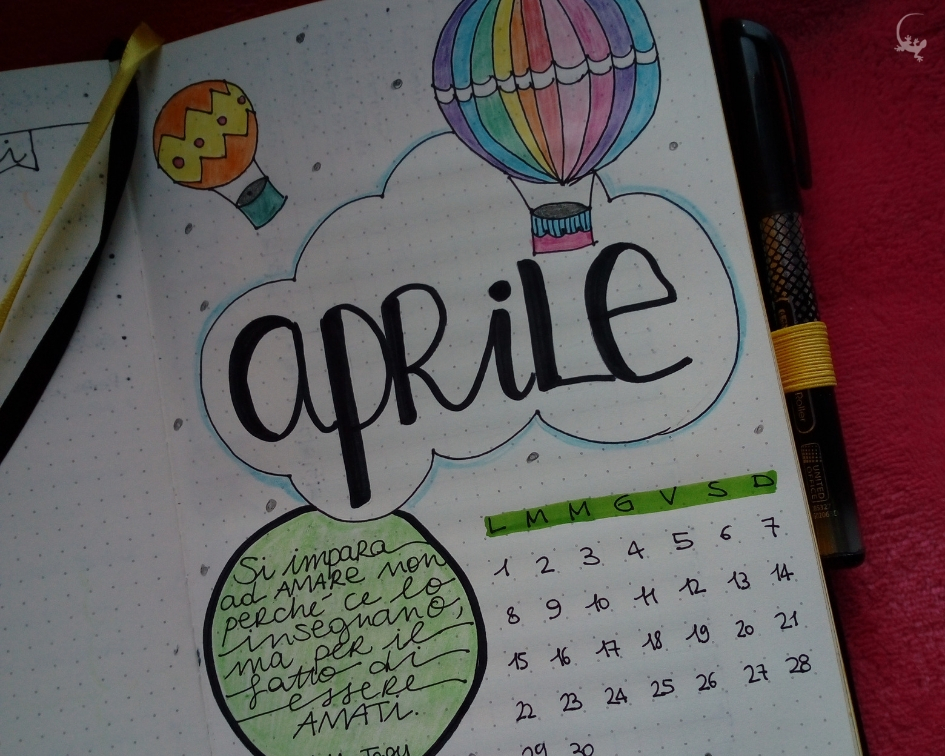 aPRiLe
L M M G V S D
1 2 3 4 5 6 7
8 9 10 11 12 13 14
15 16 17 18 19 20 21
22 23 24 25 26 27 28
29 30
Si impara
ad AMARE non
perché ce lo
insegnano,
ma per il
fatto di
essere
AMATI.
UNITED
OFFICE